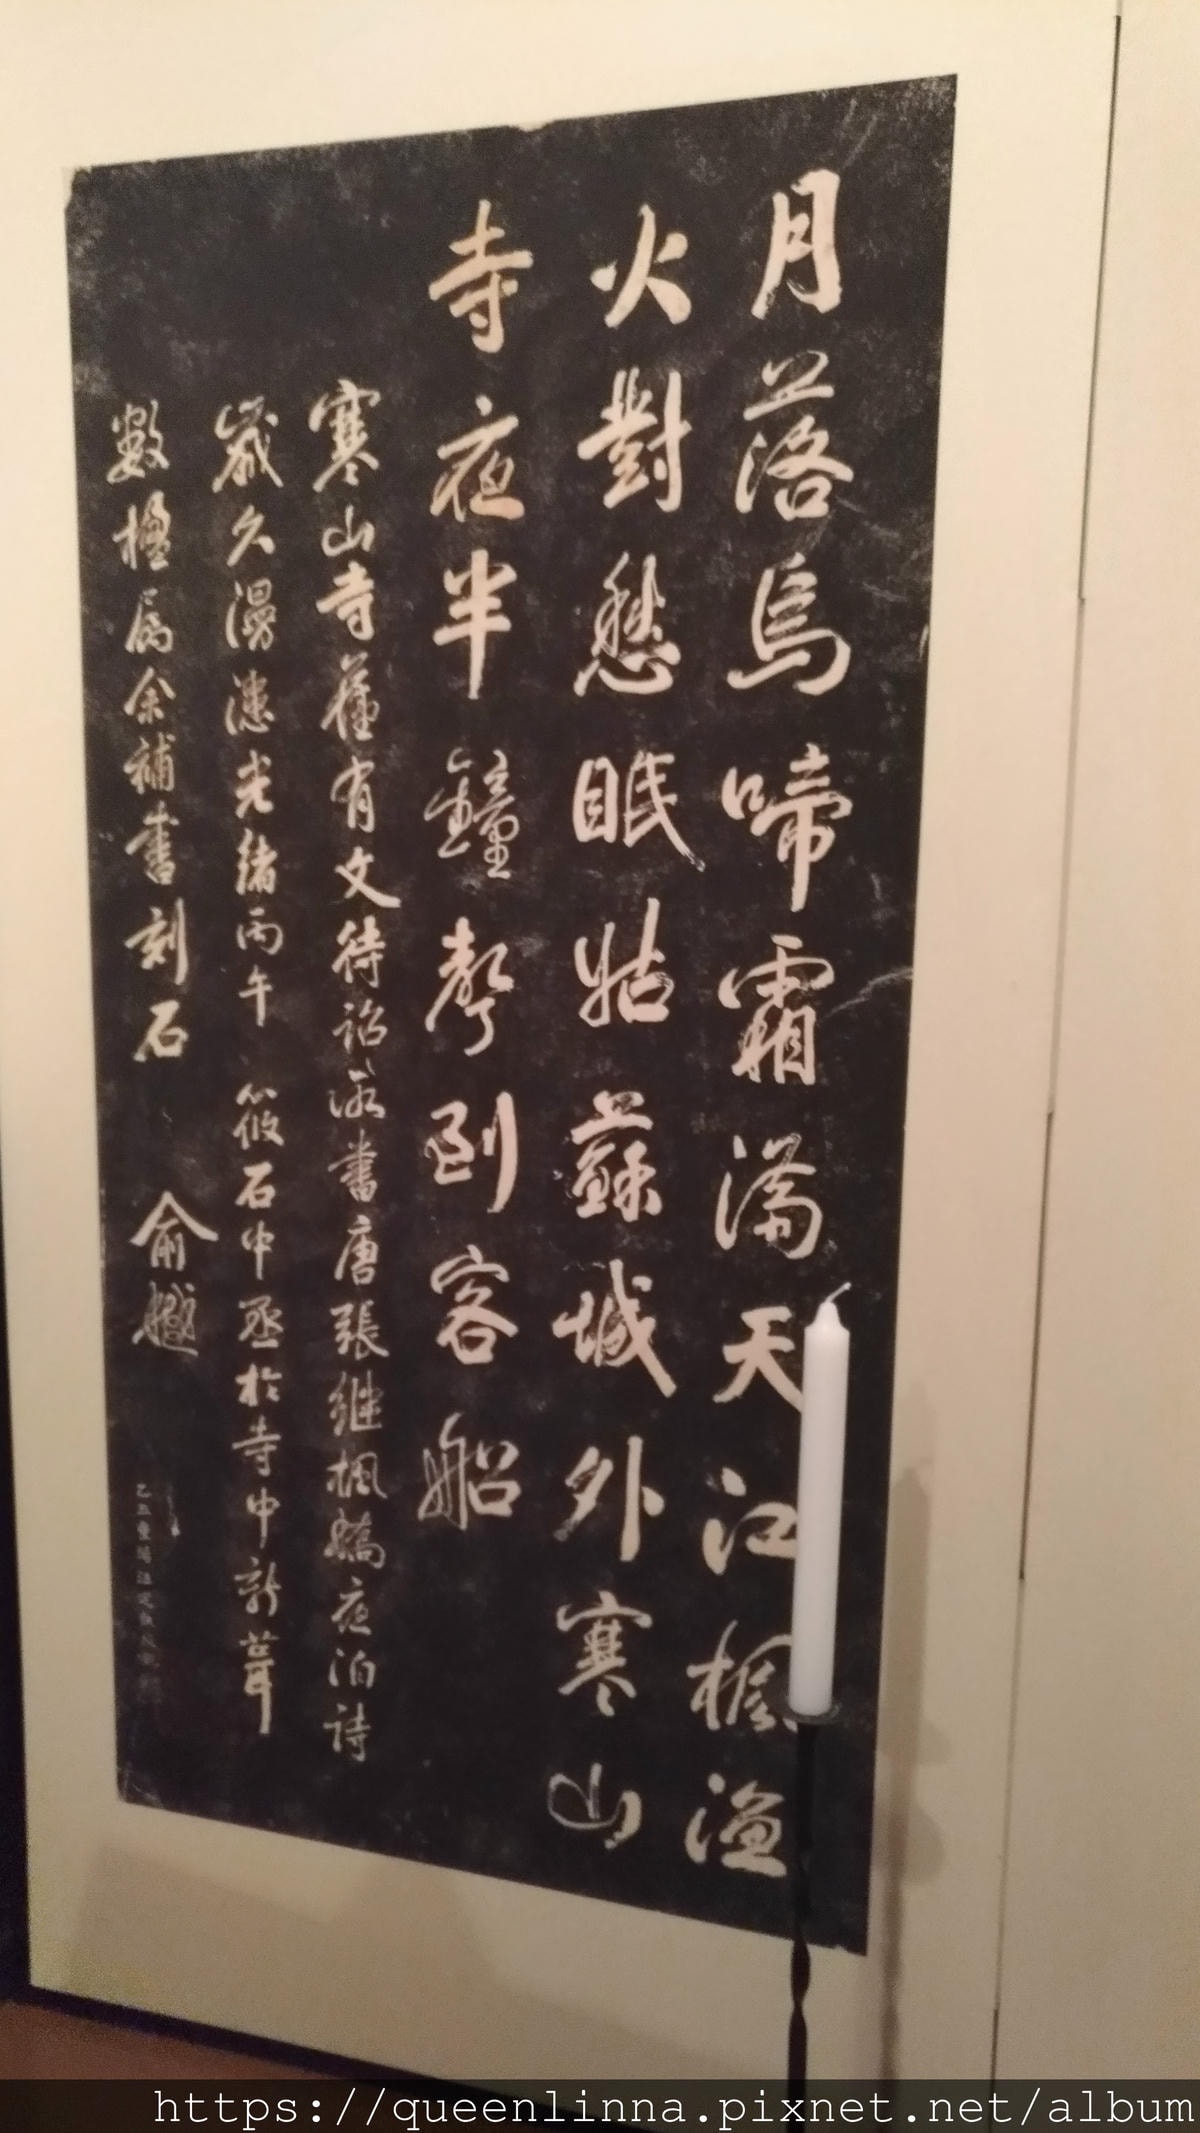 月落烏啼霜滿天江楓漁
火對愁眠姑蘇城外寒山
寺夜半鐘聲到客船
寒山寺舊有文待詔所書唐張継楓橋夜泊詩
歲久漫漶光緒丙午 筱石中丞於寺中新葺
數楹屬余補書刻石 俞樾
https://queenlinna.pixnet.net/album